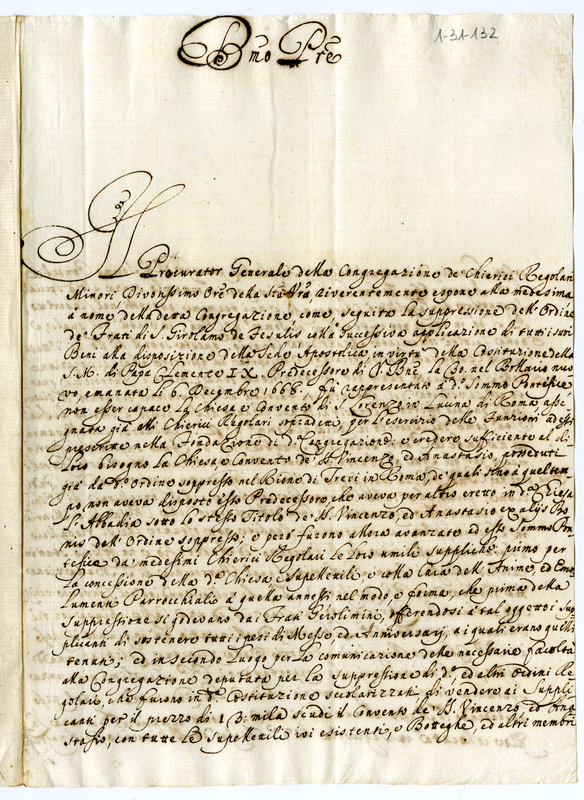 1-31-132
Bmo Pre
Il Procurator Generale della Congregazione de' Chierici Regolari
Minori, Divotissimo Ore della Stà Vrā, riverentemente espone alla medesima
a nome della detta Congregazione, come, seguita la suppressione dell'Ordine
de' Frati di S. Girolamo de Fesulis colla successiva applicazione di tutti i suoi
Beni alla disposizione della Sede Apostolica in virtù della Costituzione della
S. M. di Papa Clemente IX. Predecessore di V. Bne la 80. nel Bollario nuo
vo, emanata li 6. Decembre 1668., fù rappresentato a d.o Sommo Pontefice
non esser capace la Chiesa e Convento di S. Lorenzo in Lucina di Roma asse
gnata già alli Chierici Regolari sopradetti, per l'esercizio delle Funzioni ad essi
prescritte nella Fondazione di d.a Congregazione, e credere sufficiente al di
loro bisogno la Chiesa e Convento de' SS. Vincenzo, ed Anastasio, posseduti
già da d.o Ordine soppresso nel Rione di Trevi in Roma, de' quali sino a quel tem
po, non aveva disposto esso Predecessore, che aveva per altro eretto in d.a Chiesa
l'Abbadia sotto lo stesso Titolo de' SS. Vincenzo, ed Anastasio ex alijs bo
nis dell'Ordine soppresso; e però furono allora avanzate ad esso Sommo Pon
tefice da' medesimi Chierici Regolari le loro umili suppliche, primo per
la concessione della d.a Chiesa e Supellettili, e colla Cura dell'Anime, ed Emo
lumenti Parrocchiali a quella annessi nel modo, e forma, che prima della
suppressione si godevano dai Frati Girolimini, offerendosi a tal oggetto i sup
plicanti di sostenere tutti i pesi di Messe, ed Anniversarj, a i quali erano quelli
tenuti; ed in secondo luogo per la comunicazione delle necessarie facoltà
alla Congregazione deputata per la suppressione di d.o, ed altri Ordini Re
golari, che furono in d.a Costituzione secolarizzati, di vendere ai Suppli
canti per il prezzo di 13. mila scudi il Convento de' SS. Vincenzo, ed Ana
stasio, con tutte le Supellettili ivi esistenti, e Botteghe, ed altri membri